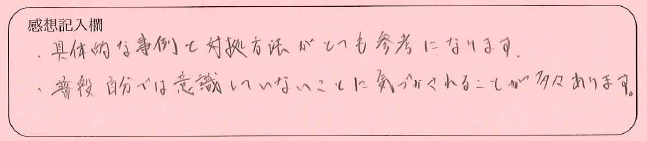 感想記入欄
・具体的な事例と対処方法がとても参考になります。
・普段自分では意識していないことに気づかされることが多々あります。